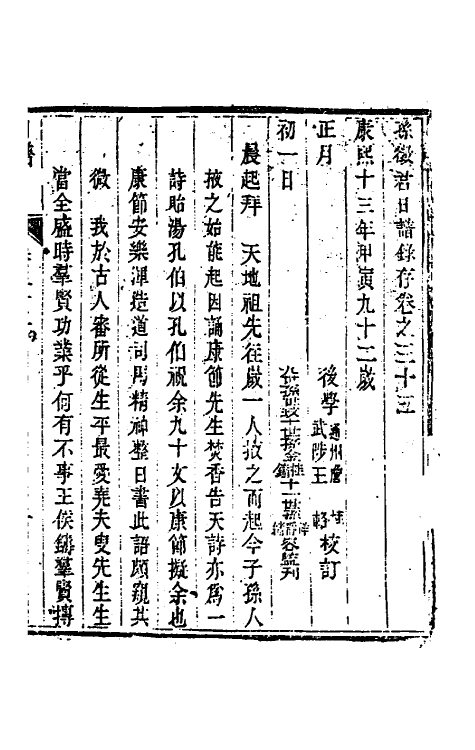 孫徵君日譜錄存卷之三十五
康熙十三年甲寅九十二歲
後學 通州 武陟王輅 校訂
正月
初一日
晨起拜 天地祖先往歲一人掖之而起今子孫人
掖之始能起因誦康節先生焚香告天詩亦為一
詩貽湯孔伯以孔伯祝余九十文以康節擬余也
康節安樂渾造道司馬精神整日書此語頗窺其
微 我於古人審所從生平最愛堯夫叟先生生
當全盛時羣賢功業乎何有不事王侯鑄羣賢摶
譜